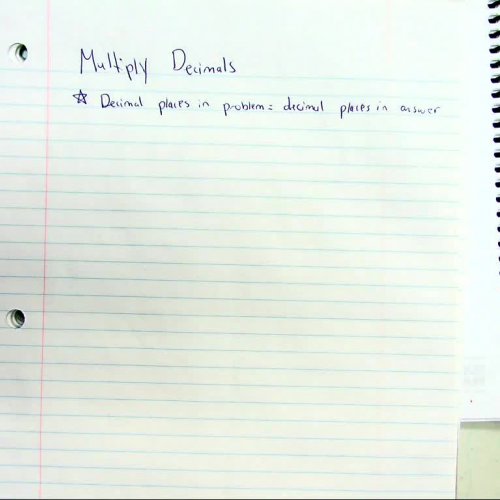 Multiply Decimals
☆ Decimal places in problem = decimal places in answer